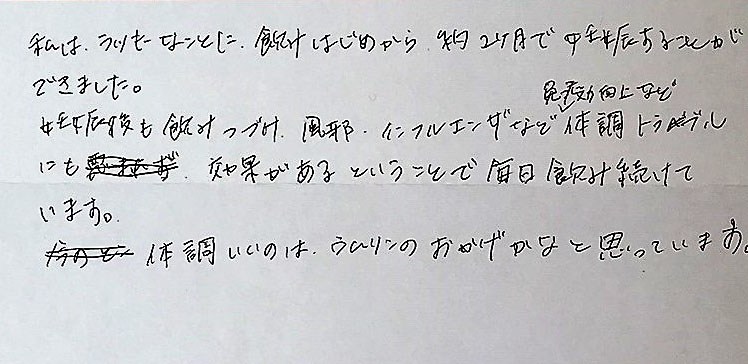 私は、ラッキーなことに、飲みはじめから、約2ヶ月で妊娠することが
できました。
免疫力向上など
妊娠後も飲みつづけ、風邪・インフルエンザなど体調トラブル
にも 効果があるということで毎日飲み続けて
います。
体調いいのは、のおかげかなと思っています。